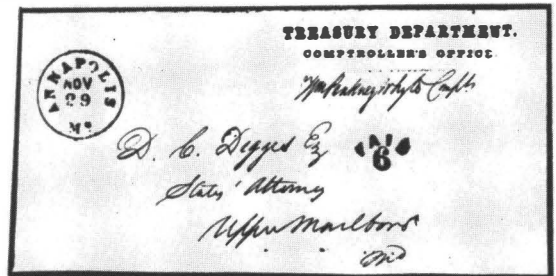 TREASURY DEPARTMENT.
COMPTROLLER'S OFFICE.
Wm Pinkney Whyte Compt
ANNAPOLIS
NOV
29
Md
PAID
6
D. C. Digges Esq
States' Attorney
Upper Marlboro
Md